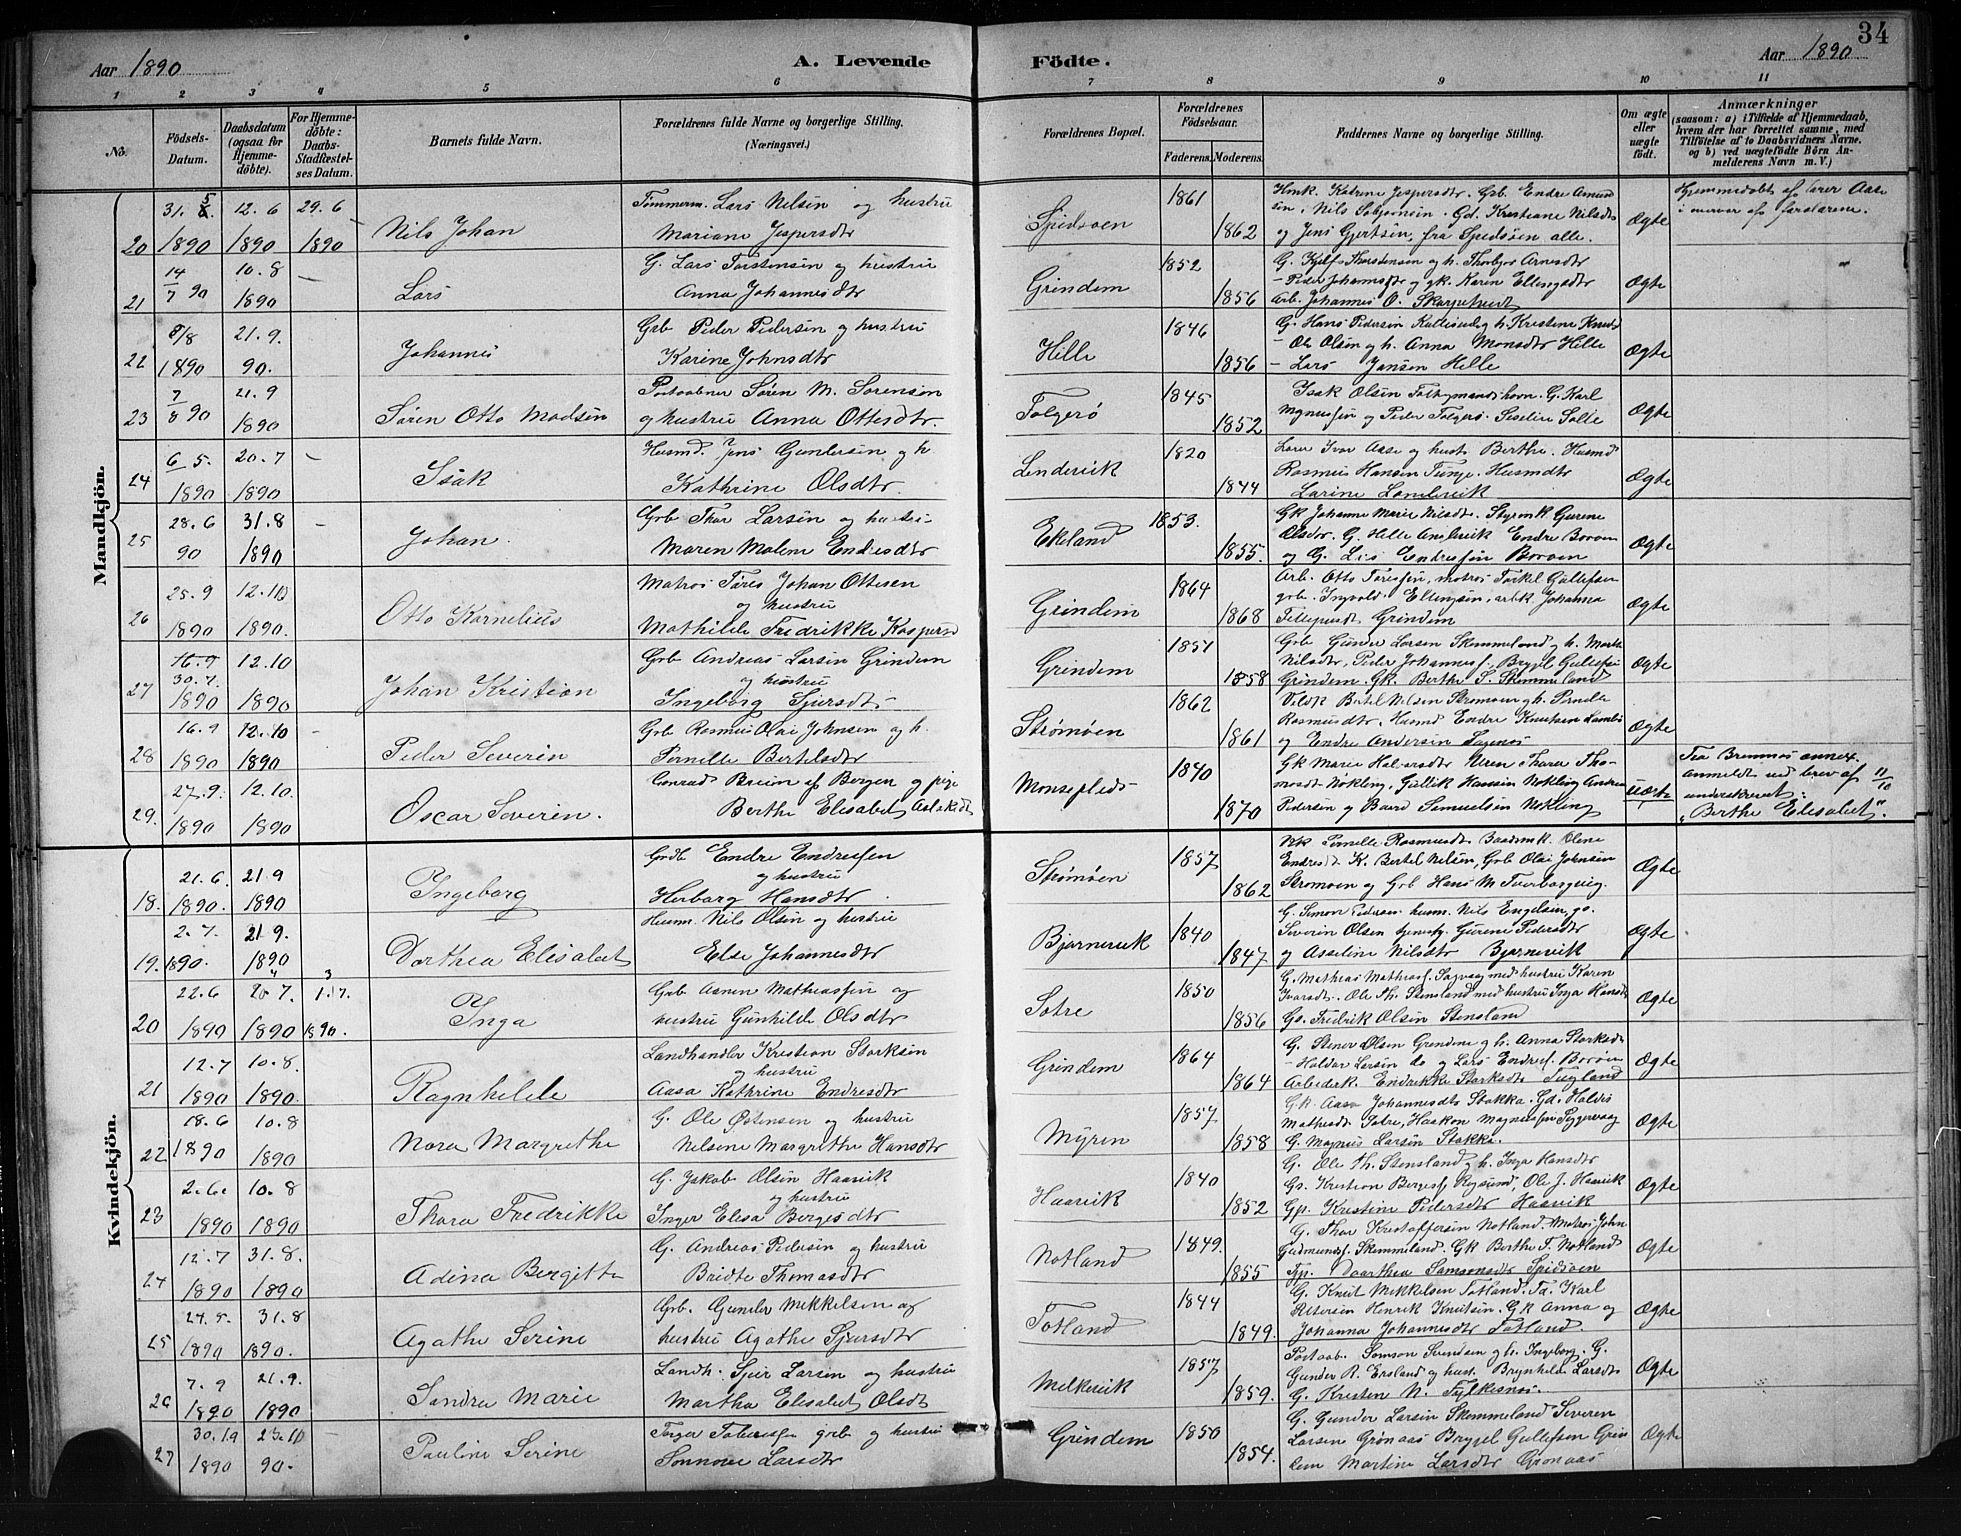 34
Aar 1890
A. Levende
Födte.
Aar 1890
1 2 3 4 5 6 7 8 9 10 11
No.
Födsels-Datum.
Daabsdatum (ogsaa for Hjemme-döbte).
For Hjemme-döbte: Daabs-Stadfæstel-ses Datum.
Barnets fulde Navn.
Forældrenes fulde Navne og borgerlige Stilling. (Næringsvei.)
Forældrenes Bopæl.
Forældrenes Födselsaar.
Faderens. Moderens.
Faddernes Navne og borgerlige Stilling.
Om ægte eller uægte födt.
Anmærkninger
(saasom: a) i Tilfælde af Hjemmedaab, hvem der har forrettet samme, med Tilföielse af to Daabsvidners Navne. og b) ved uægtefödte Börn An-melderens Navn m. V.)
Mandkjön.
20 31. 5. 1890 12.6 1890 29.6 1890 Nils Johan
Tømmerm. Lars Nelsen og hustru
Mariane Jespersdtr
Spidsøen 1861 1862
Hmk. Katrine Jespersdtr. Grb Endre Amund
sen, Nils Gd. Kristiane Nilsdtr
og Jens Gjertsen, fra Spidsøen alle.
Ægte
Hjemmedøbt af lærer Aase
i nærvær af forældrene.
21 14/7 90 10.8 1890 – Lars
G. Lars Torstensen og hustru
Anna Johannesdtr
Grindem 1852 1856
G. Thorstensen og h. Thorbjør Arnesdtr
– Peder og gk. Karen Ellingsdtr
Arb. Johannes O.
Ægte
22 8/8 1890 21.9. 90. Johannes
Grb Peder Pedersen og hustru
Karine Johnsdtr
Hille 1846 1856
G. Hans Pedersen og h. Kristene Knuds
– Ole Olsen og h. Anna Monsdtr Hille
– Lars Jansen Hille
Ægte
23 7/8 90 21.9 1890 Søren Otto Madsen
Postaabner Søren M. Sørensen
og hustru Anna Ottesdtr.
Folgerø 1845 1852
Isak Olsen G. Karl
og Peder Folgerø. Seselie Solle
Ægte
24 6/5. 1890 20.7 1890 – Isak
Husmd. Jens Gundersen og h
Kathrine Olsdtr.
Lindervik 1820 1844
Lærer Ivar Aase og hust. Berthe. Husmd
Rasmus Hansen Tunge. Husmdtr
Larine
Ægte
25 28.6 90 31.8 1890 – Johan.
Grb Thor Larsen og hustru
Maren Malene Endresdtr
Ekeland 1853. 1855.
Gk Johanne Marie Nilsdtr. Styrmk Gurine
Olsdtr. G. Helle Endre Borøen
og G. Lars Endresen Borøen
Ægte
26 25.9 1890 12.10 1890. Otto Kornelius
Matros Tøres Johan Ottesen
og hustru
Mathilde Fredrikke Kaspersd
Grindem 1864 1868
Arb. Otto Tøressen, matros Torkel Gullefsen
grb. Ingvald Ellingsen, arbk Johanna
Grindem
Ægte
27 16.9 30.7. 1890 12.10 1890 Johan Kristian
Grb Andreas Larsen Grindem
og hustru
Ingeborg Sjursdtr
Grindem 1857 1858
Grb Gunder Larsen Skimmeland og h. Marte
Nilsdtr, Peder Johanness., Brygel Gullefsen
Grindem. Gk. Berthe S. Skimmeland
Ægte
28 16.9 1890 12.10 1890 – Peder Severin
Grb Rasmus Olai Johnsen og h.
Pernille Bertelsdtr
Strømøen 1862 1861
Bertel Nilsen Strømøen og h. Pernille
Rasmusdtr, Husmd Endre Knutsen
og Endre Andersen
Ægte
29. 27.9. 1890 12.10. 1890 Oscar Severin.
Conrad Breien af Bergen og pige
Berthe Elisabet Aslaksdtr
1840 1870
Gk Marie Thora Tho-
masdtr Nokling, Gullik Hansen Nokling Andreas
Pedersen og Baard Samuelsen Nokling
uægte
Fra Bremnes annex.
Anmeldt ved brev af 11/10
underskrevet:
"Berthe Elisabet".
Kvindekjön.
18. 21.6. 1890. 21.9 1890 Ingeborg
Grdb Endre Endresen
og hustru
Herborg Hansdtr
Strømøen 1857 1862
Pernille Rasmusdtr. Olene
Endresdt K. Bertel Nilsen, Grb Olai Johnsen
Strømøen og Grb Hans M.
Ægte
19. 2.7. 1890. 21.9. 1890 Dorthea Elisabet
Husm. Nils Olsen og hustru
Else Johannesdtr
Bjørnevik 1840 1847
G. Simon Pedersen husm. Nils Engelsen, gs.
Severin Olsen Gurine Pedersdtr
og Asseline Nilsdtr Bjørnevik
Ægte
20 22.6 1890 20 7. 1890 1.7. 1890. Inga
Grb Aanen Mathiassen og
hustru Gunhilde Olsdtr
Totre 1850 1856
G. Mathias Mathiass. Sagvag med hustru Karen
Ivarsdt. Ole Th. Stensland med hustru Inga Hansdt
Gs. Fredrik Olsen Stensland
Ægte
21 12.7 1890 10.8. 1890. Ragnhilde
Landhandler Kristian Storksen
og hustru
Aasa Kathrine Endresdtr
Grindem 1864 1864
G. Stener Olsen Grindem og h. Anna Storksdt
– Haldor Larsen do og Lars Endres. Borøen
Arbeiderk. Endrikke Storksdtr Fugland
Ægte
22 18.6 1890 10.8 1890 Nora Margrethe
G. Ole Østensen og hustru
Nelsine Margrethe Hansdtr
Myren 1857 1858
Gk. Aasa Johannesdtr Stokka. Gd. Haldis
Mathisdt Totre, Haakon Magnussen
G. Magnus Larsen Stokka.
Ægte
23 2.6. 1890 10.8 1890 Thora Fredrikke
G. Jakob Olsen Haavik
og hustru
Inger Elisa Bergesdtr
Haavik 1840 1852
G. Ole Th. Stensland og h. Inga Hansdtr
Gs. Kristian Berges. Røgsund, Ole J. Haavik
Gp. Kristine Pedersdtr Haavik
Ægte
24 12.7 1890 31.8. 1890 Adina Bergitte
G. Andreas Pedersen og hustru
Bridte Thomasdtr
Notland 1849. 1855
G. Thor Kristoffersen Notland. Matros John
Gudmunds. Skimmeland. Gk Berthe T. Notland
Tjp. Dorthea Samsonsdtr Spidsøen
Ægte
25 24.8. 1890 31.8 1890. Agathe Serine
Grb. Gunder Mikkelsen og
hustru Agathe Sjursdtr
Totland 1844 1849.
G. Knut Mikkelsen Totland. Karl
Petersen Henrik Knutsen. Gk Anna og
Johanna Johannesdtr Totland.
Ægte
26 7.9 1890 21.9. 1890 Sandra Marie
Landh. Sjur Larsen og hustru
Martha Elisabet Olsdt
Melkevik 1857 1859.
Postaab. Samson Svendsen og h. Ingeborg. G.
Gunder R. Ersland og hust. Brynhilde Larsdtr
G. Kristen N. Fylkesnes.
Ægte
27 30.9 1890 23.10 90. Pauline Serine
grb og hustru
Sonnove Larsdtr
Grindem 1850 1854.
G. Gunder Larsen Skimmeland Severin
Larsen Grønaas Brygel Gullefsen Grin
dem Martine Larsdtr Grønaas
Ægte